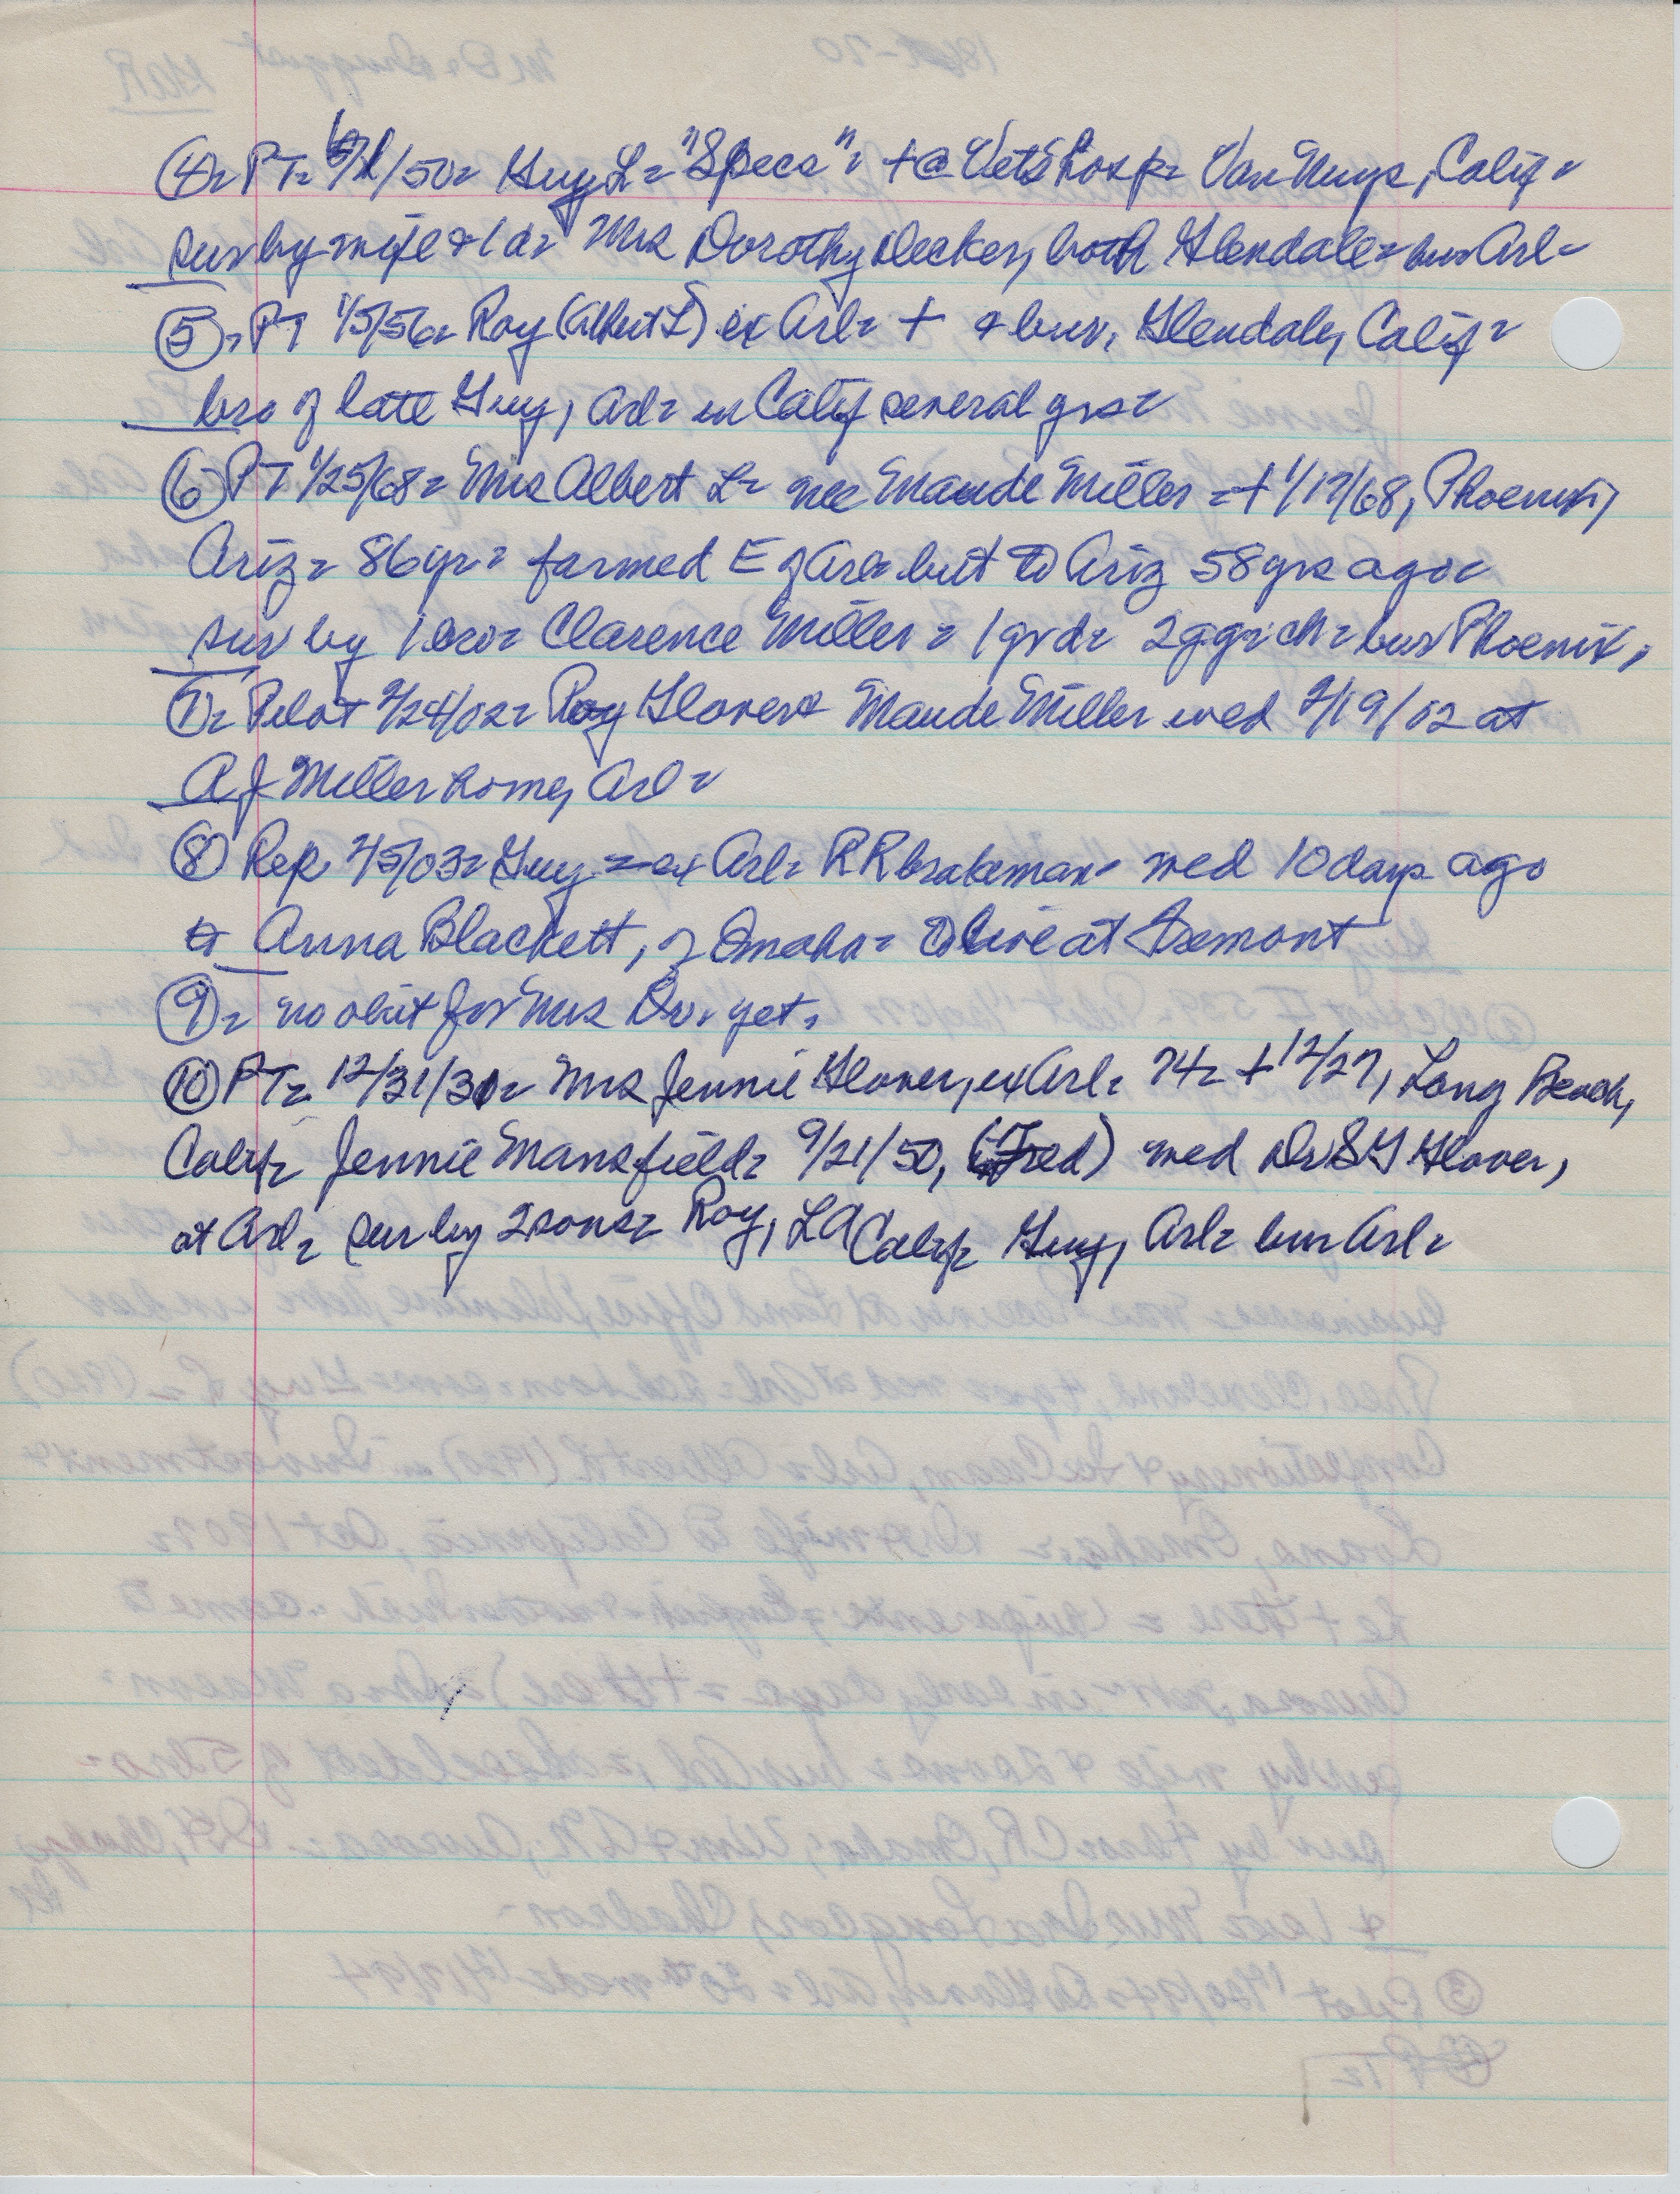 ④= PT= 6/1/50= Guy L= "Specs"= + @ Vets hosp= Van Nuys, Calif=
sur by wife & 1 d= Mrs Dorothy Decker, both Glendale= bur Arl=
⑤= PT 1/5/56= Roy (Albert L) ex Arl= + & bur, Glendale, Calif=
bro of late Guy, Arl= in Calif several yrs=
⑥ PT 1/25/68= Mrs Albert L= nee Maude Miller =+ 1/17/68, Phoenix,
Ariz= 86 yr= farmed E of Arl= but to Ariz 58 yrs ago=
sur by 1 bro= Clarence Miller= 1 grd= 2 ggrch= bur Phoenix,
⑦= Pilot 2/24/02= Roy Glover & Maude Miller wed 2/19/02 at
A J Miller home, Arl=
⑧ Rep, /03= Guy = ex Arl= RR brakeman= wed 10 days ago
to Anna Blackett, of Omaha= to live at Fremont
⑨= no obit for Mrs Dr. yet,
⑩ PT= 12/31/31= Mrs Jennie Glover, ex Arl= 74= + 12/27, Long Beach,
Calif= Jennie Mansfield= 9/21/50, (Fred) wed Dr S G Glover,
at Arl= sur by 2 sons= Roy, LA Calif= Guy, Arl= bur Arl=